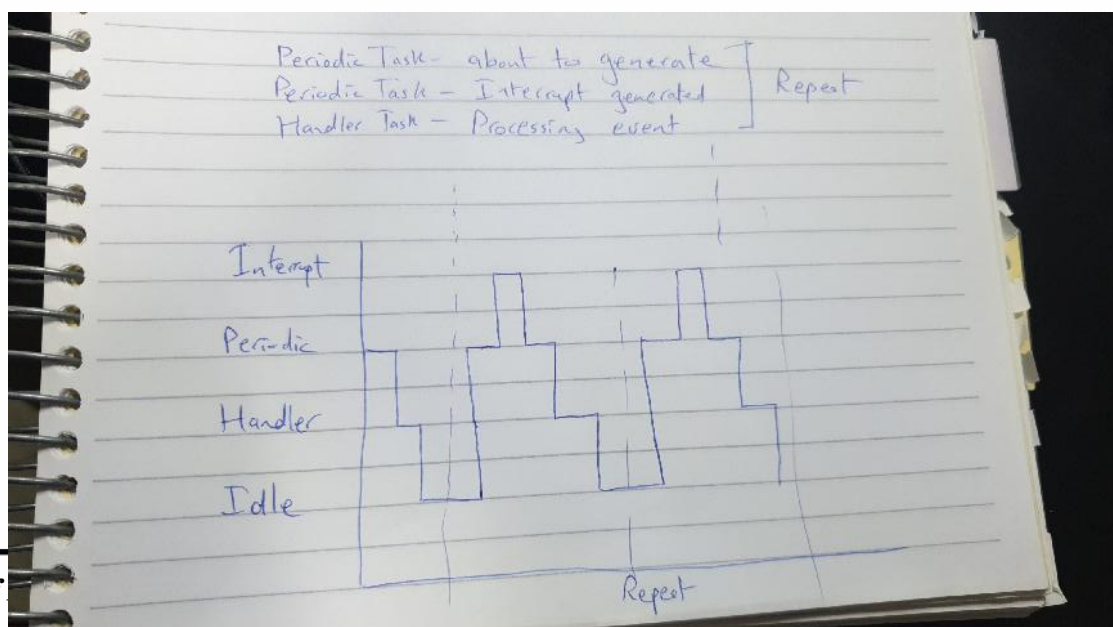 Periodic Task - about to generate
Periodic Task - Interrupt generated
Handler Task - Processing event
Repeat
Interrupt
Periodic
Handler
Idle
Repeat